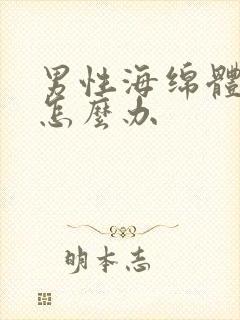 男性海绵體
怎麼办
明本志